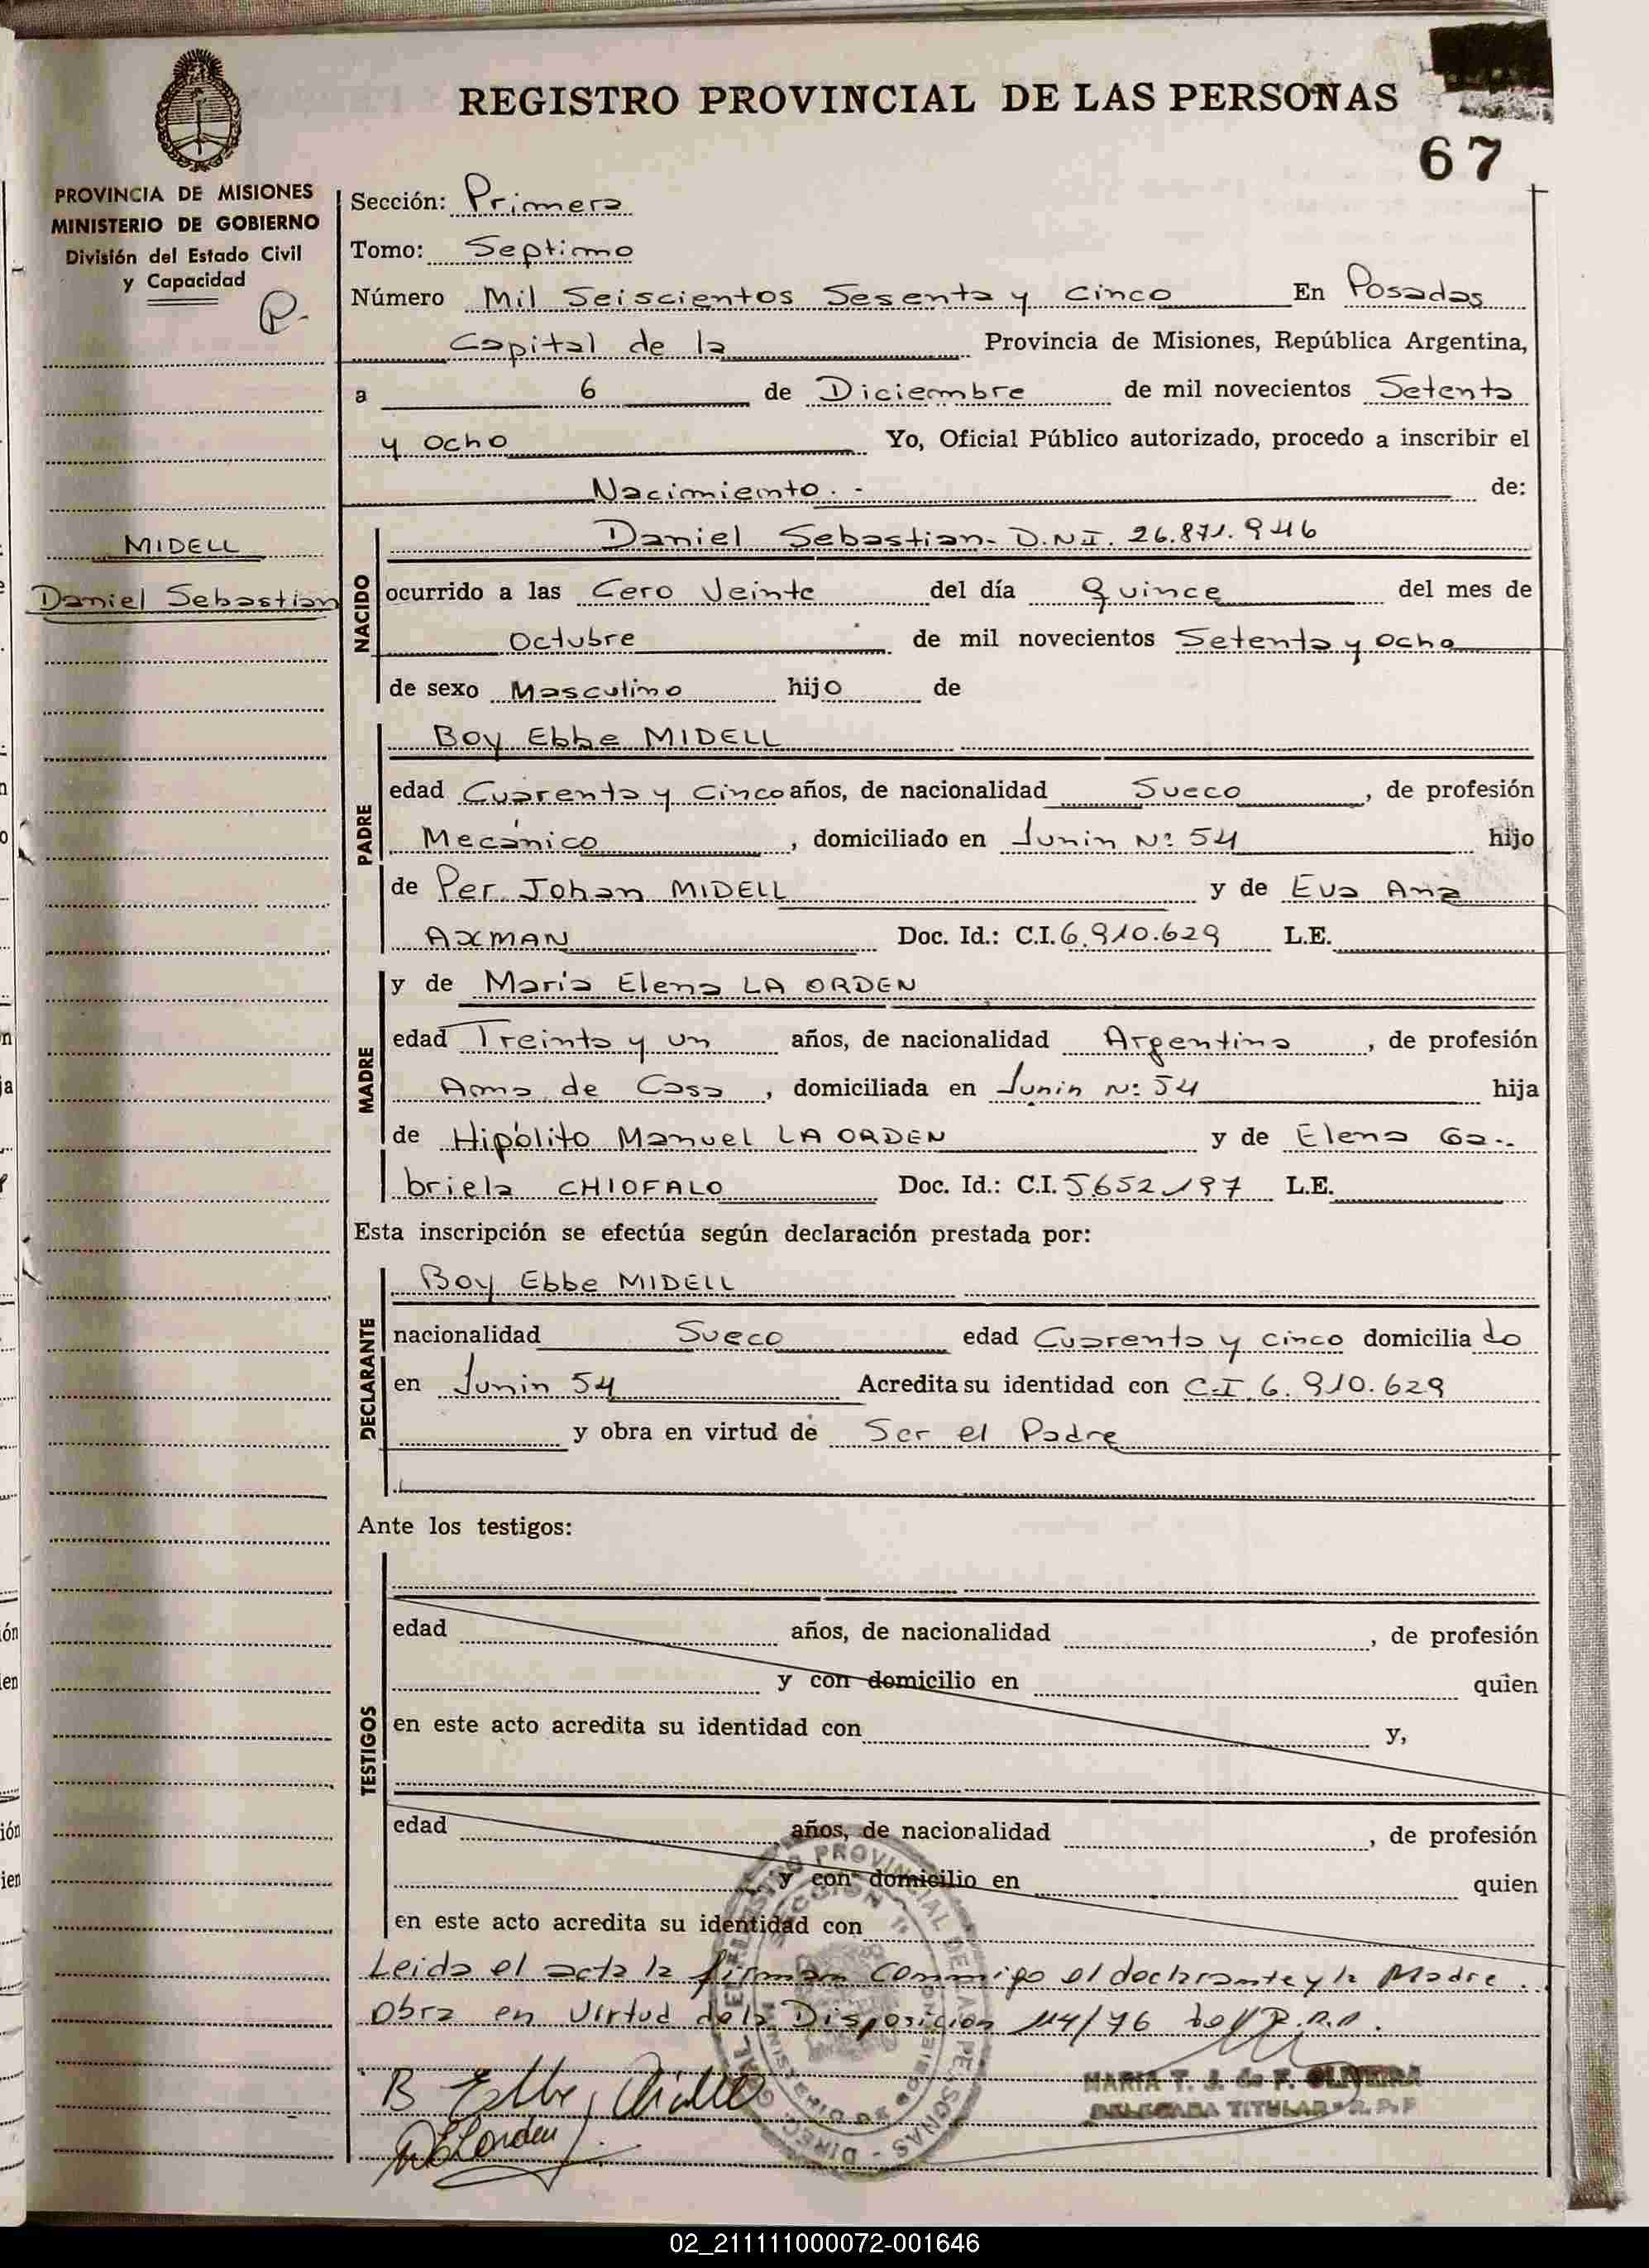 REGISTRO PROVINCIAL DE LAS PERSONAS
67
PROVINCIA DE MISIONES
MINISTERIO DE GOBIERNO
División del Estado Civil
y Capacidad
Sección: Primera
Tomo: Septimo
Número Mil Seiscientos Sesenta y Cinco En Posadas
Capital de la Provincia de Misiones, República Argentina,
a 6 de Diciembre de mil novecientos Setenta
y ocho Yo, Oficial Público autorizado, procedo a inscribir el
Nacimiento.- de:
MIDELL
Daniel Sebastian
NACIDO
Daniel Sebastian- D.N.I. 26.871.946
ocurrido a las Cero Veinte del día Quince del mes de
Octubre de mil novecientos Setenta y Ocho
de sexo Masculino hijo de
PADRE
Boy Ebbe MIDELL
edad Cuarenta y Cinco años, de nacionalidad Sueco, de profesión
Mecánico, domiciliado en Junin Nº 54 hijo
de Per Johan MIDELL y de Eva Ana
AXMAN Doc. Id.: C.I. 6.910.629 L.E.
MADRE
y de Maria Elena LA ORDEN
edad Treinta y un años, de nacionalidad Argentina, de profesión
Ama de Casa, domiciliada en Junin Nº 54 hija
de Hipólito Manuel LA ORDEN y de Elena Ga-
briela CHIOFALO Doc. Id.: C.I. 5652197 L.E.
Esta inscripción se efectúa según declaración prestada por:
DECLARANTE
Boy Ebbe MIDELL
nacionalidad Sueco edad Cuarenta y cinco domiciliado
en Junin 54 Acredita su identidad con C.I. 6.910.629
y obra en virtud de Ser el Padre
Ante los testigos:
TESTIGOS
edad años, de nacionalidad , de profesión
y con domicilio en quien
en este acto acredita su identidad con y,
edad años, de nacionalidad , de profesión
y con domicilio en quien
en este acto acredita su identidad con
Leida el acta la firman Conmigo el declarante y la Madre.
Obra en Virtud de la Disposicion 114/76
B Ebbe Midell
MARIA T. J. de F. OLIVEIRA
DELEGADA TITULAR - R. P. P
02_211111000072-001646